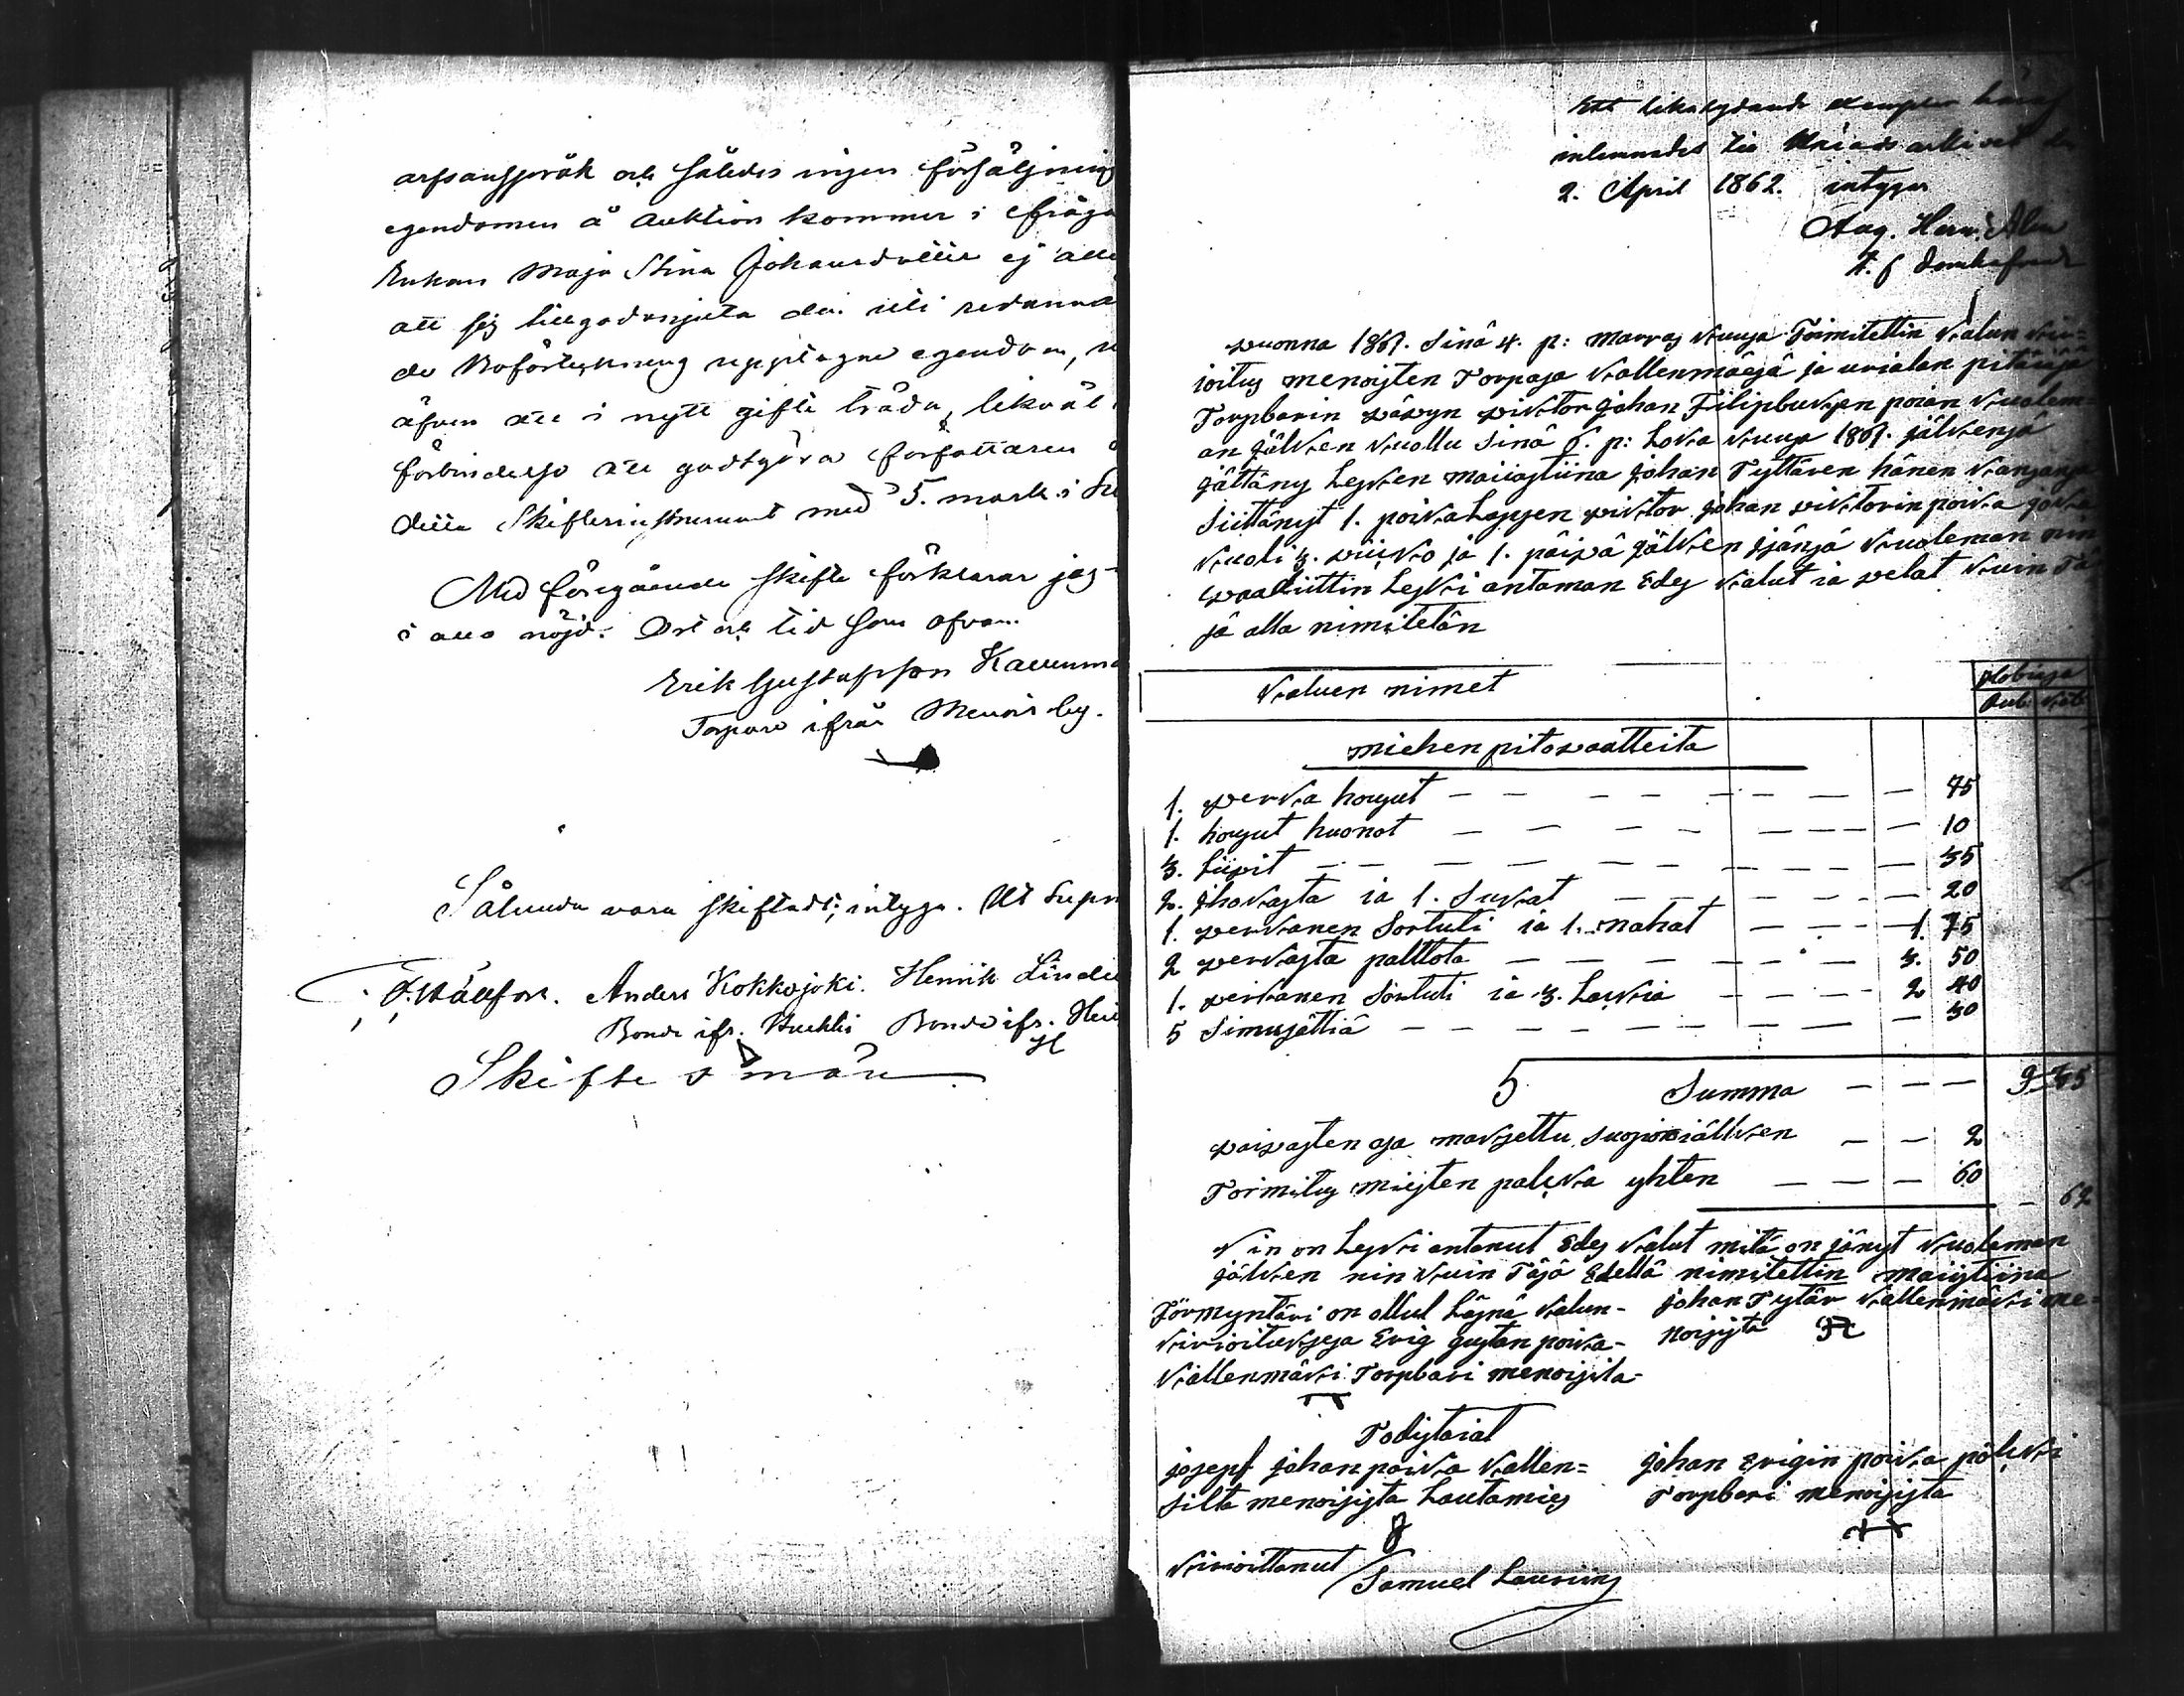 arfsanspråk och således ingen försäljning
egendomen å auktion kommer i fråga
Enkan Maja Stina Johansdotter ej
att sig tillgodonjuta den uti
de Boförteckning upptagne egendom,
äfven att i nytt gifte träda, likväl
förbindelse att godtgöra författaren
detta Skiftesinstrument med 5. mark i
Med föregående skifte förklarar jag
i allo nöjd. Ort och tid som ofvan.
Erik Gustafsson
Torpare ifrån Menois by.
Sålunda vara skiftadt; intyga. Ut Supra
F. Wällfors. Anders Kokkojoki. Henrik
Bonde ifr. Bonde ifr.
Skiftesmän
Ett likalydande exemplar
inlemnadt till Härads arkivet
2. April 1862. intygar
Aug. Herm.
t. f domhafvande
wuonna 1861. Sinä 4. p: marras kuusa Toimitettin kalun kir=
ioitus menoisten Torpasa kallenmäesä ja urialan pitäjäs
Torpbarin wäwyn wiktor johan Filipbuksen poian kuolem=
an jälken kuollu Sinä 6. p: Loka kuusa 1861. jälkensä
jättäny Lesken maiiastiina johan Tyttären hänen kansansa
Siittänyt 1. poika Lapsen wiktor johan wiktorin poika joka
kuoli 3. wiiko ja 1. päiwä jälken isänsä kuoleman nin
waadittin Leski antaman Edes kalut ia welat kuin Tä
sä alla nimitetän
kaluen nimet
Rub: kob:
miehen pitowaatteita
1. werka housut — — — 75
1. housut huonot — — — 10
3. Liiwit — — — 35
2. ihokasta ia 1. Sukat — — — 20
1. werkanen Sortuti ia 1. nahat — — — 1. 75
2 werkasta palttota — — — 3. 50
1. werkanen Sortuti ia 3. Lakkia — — — 2 40
5 Simusättiä — — — 30
5 Summa — — — 9 35
waiwasten osa maksettu suosion iälken — — 2
Toimitus miesten palkka yhten — — — 60
— 62
Nin on Leski antanut Edes kalut mitä on jänyt kuoleman
jälken nin kuin Täsä Edellä nimitettin maiistiina
Förmyntäri on ollut Läsnä kalun- johan Tytär kallenmäki me=
kirioituksesa Erig gustan poika- noisista
kallenmäki Torpbari menoisita-
Todistaiat
josepf johan poika kallen= johan Erigin poika
silta menoisista Lautamies Torpbari menoisista
kirioittanut Samuel Lauring